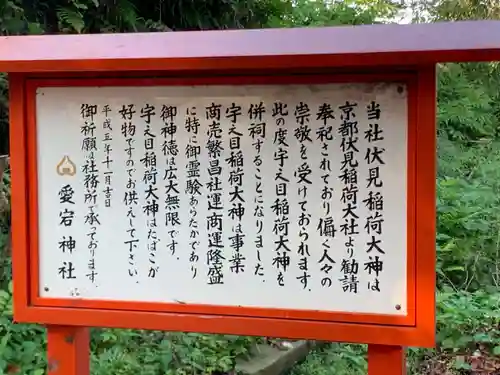 当社伏見稲荷大神は
京都伏見稲荷大社より勧請
奉祀されており偏く人々の
崇敬を受けておられます。
此の度宇え目稲荷大神を
併祠することになりました。
宇え目稲荷大神は事業
商売繁昌社運商運隆盛
に特に御霊験あらたかであり
御神徳は広大無限です。
宇え目稲荷大神はたばこが
好物ですのでお供えして下さい。
平成三年十一月吉日
御祈願は社務所で承っております。
愛宕神社